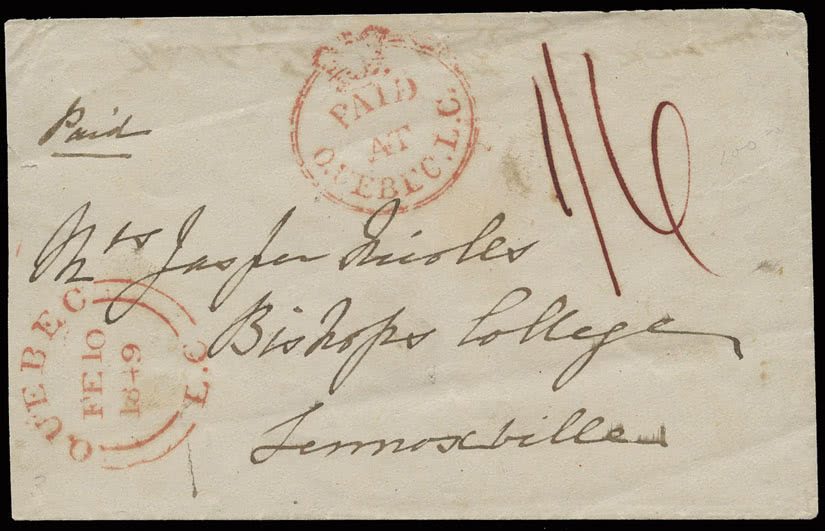 PAID
AT
QUEBEC.L.C.
Paid
1/6
Mrs Jasper Nicolls
Bishops College
Lennoxville
QUEBEC
L.C
FE 10
1849